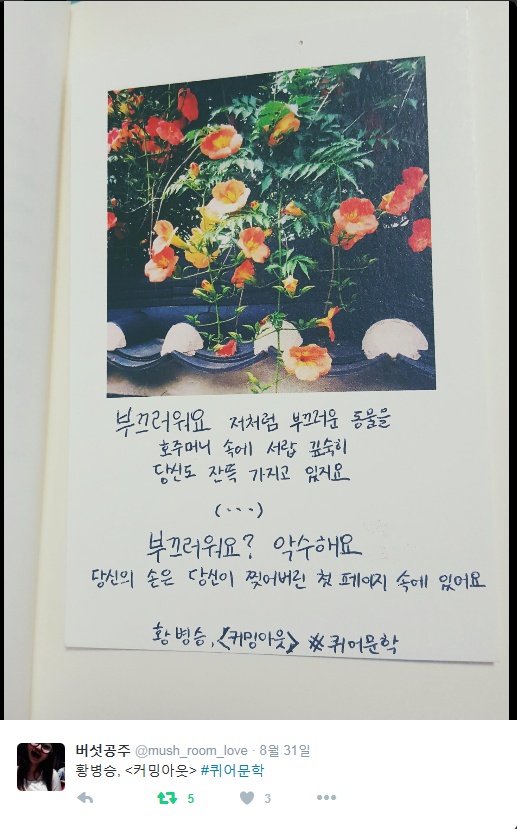 부끄러워요 저처럼 부끄러운 동물을
호주머니 속에 서랍 깊숙히
당신도 잔뜩 가지고 있지요
(···)
부끄러워요? 악수해요
당신의 손은 당신이 찢어버린 첫 페이지 속에 있어요
황병승, <커밍아웃> #퀴어문학
버섯공주 @mush_room_love · 8월 31일
황병승, <커밍아웃> #퀴어문학
5 3